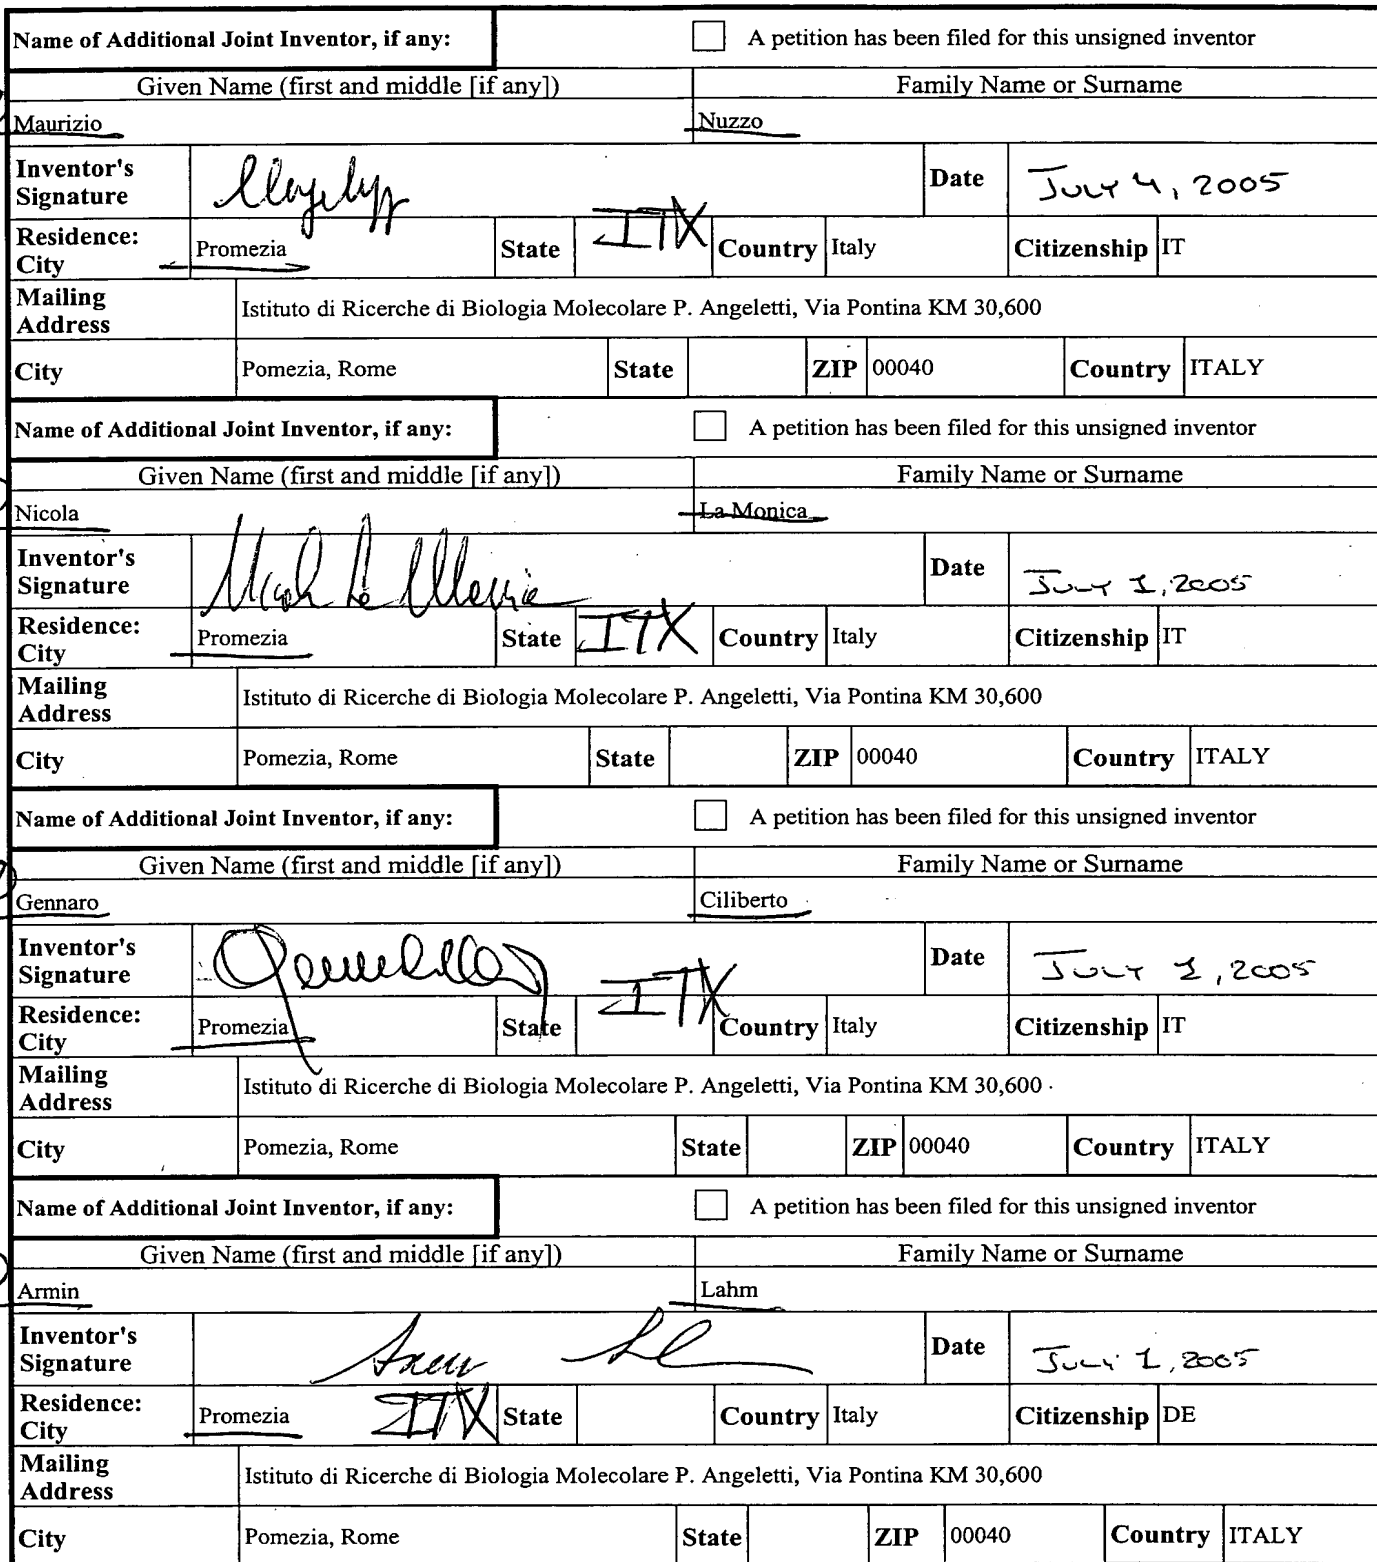 Name of Additional Joint Inventor, if any: A petition has been filed for this unsigned inventor
Given Name (first and middle [if any]) Family Name or Surname
Maurizio Nuzzo
Inventor's Signature Date July 4, 2005
Residence: City Promezia State ITX Country Italy Citizenship IT
Mailing Address Istituto di Ricerche di Biologia Molecolare P. Angeletti, Via Pontina KM 30,600
City Pomezia, Rome State ZIP 00040 Country ITALY
Name of Additional Joint Inventor, if any: A petition has been filed for this unsigned inventor
Given Name (first and middle [if any]) Family Name or Surname
Nicola La Monica
Inventor's Signature Date July 1, 2005
Residence: City Promezia State ITX Country Italy Citizenship IT
Mailing Address Istituto di Ricerche di Biologia Molecolare P. Angeletti, Via Pontina KM 30,600
City Pomezia, Rome State ZIP 00040 Country ITALY
Name of Additional Joint Inventor, if any: A petition has been filed for this unsigned inventor
Given Name (first and middle [if any]) Family Name or Surname
Gennaro Ciliberto
Inventor's Signature Date July 1, 2005
Residence: City Promezia State ITX Country Italy Citizenship IT
Mailing Address Istituto di Ricerche di Biologia Molecolare P. Angeletti, Via Pontina KM 30,600
City Pomezia, Rome State ZIP 00040 Country ITALY
Name of Additional Joint Inventor, if any: A petition has been filed for this unsigned inventor
Given Name (first and middle [if any]) Family Name or Surname
Armin Lahm
Inventor's Signature Date July 1, 2005
Residence: City Promezia ITX State Country Italy Citizenship DE
Mailing Address Istituto di Ricerche di Biologia Molecolare P. Angeletti, Via Pontina KM 30,600
City Pomezia, Rome State ZIP 00040 Country ITALY